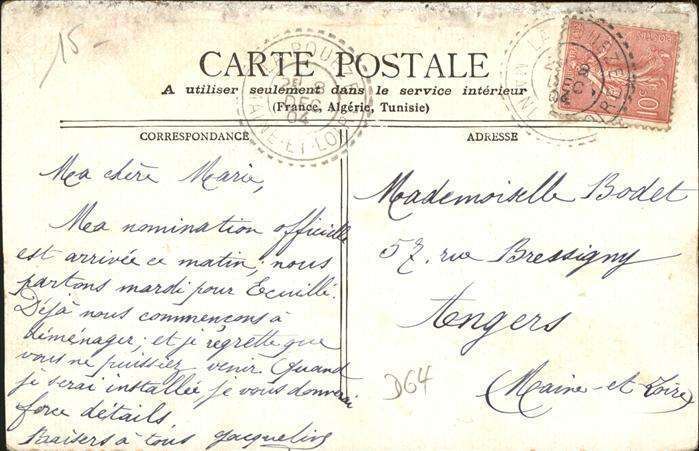 15-
CARTE POSTALE
A utiliser seulement dans le service intérieur
(France, Algérie, Tunisie)
CORRESPONDANCE
Ma chère Marie,
Ma nomination officielle
est arrivée ce matin; nous
partons mardi pour Ecuillé.
Déjà nous commençons à
déménager; et je regrette que
vous ne puissiez venir. Quand
je serai installée je vous donnerai
force détails
Baisers à tous Jacqueline
ADRESSE
Mademoiselle Bodet
57, rue Bressigny
Angers
(Maine-et-Loire)
D64
DEC
04
10